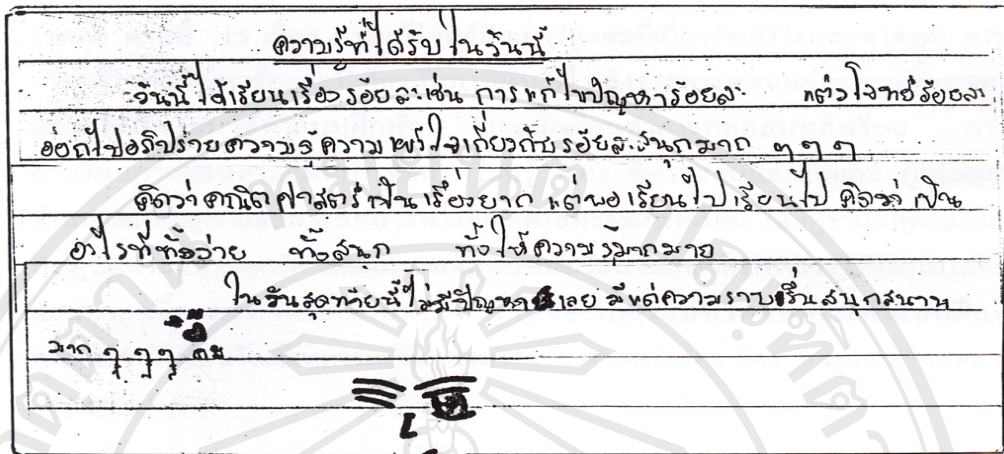 ความรู้ที่ได้รับในวันนี้
วันนี้ได้เรียนเรื่องร้อยละเช่น การแก้ไขปัญหาร้อยละ แต่งโจทย์ร้อยละ
ออกไปอภิปรายความรู้ความเข้าใจเกี่ยวกับร้อยละสนุกมาก ๆๆๆ
คิดว่าคณิตศาสตร์เป็นเรื่องยาก แต่พอเรียนไปเรียนไป คิดว่า เป็น
อะไรที่ทั้งง่าย ทั้งสนุก ทั้งให้ความรู้มากมาย
ในวันสุดท้ายนี้ไม่มีปัญหาเลย มีแต่ความราบรื่นสนุกสนาน
มาก ๆ ๆ ๆ ค่ะ